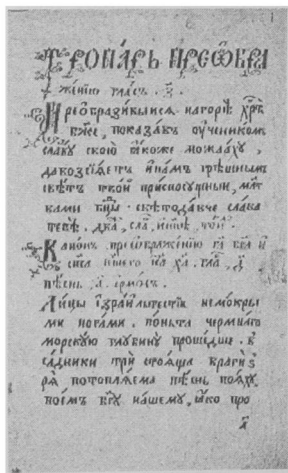 ТРОПА́РЬ ПРЕѠБРА
же́нїю гла́съ . з҃ .
Преѡбрази́выйся на горѣ̀ хрⷭ҇тѐ
бж҃е , показа́въ ᲂу҆ченико́мъ
сла́ву свою̀ ꙗ҆́коже можа́аху ,
да возсїѧ́етъ и҆ на́мъ грѣ́шнымъ
свѣ́тъ тво́й при́сносущный , млт҃
вами бц҃ы . свѣтода́вче сла́ва
тебѣ̀ , два́ , сла́ , и҆ нн҃ѣ , то́й .
Кано́нъ преѡбраже́нїю га҃ бг҃а и҆
сп҃са на́шего і҆са ха҃ . гла́ , д҃
пѣ́снь . а҃ . е҆рмо́с .
Ли́цы і҆зраи́льтестїи немо́кры
ми нога́ми . по́ньта чермна́го
морску́ю глубину̀ проше́дше . в
са́дники три́ стоѧ́ща враги̑ з
рѧ̀ потоплѧ́ема пѣ́снь поѧ́ху
пое́мъ бг҃у на́шему , ꙗ҆́ко про